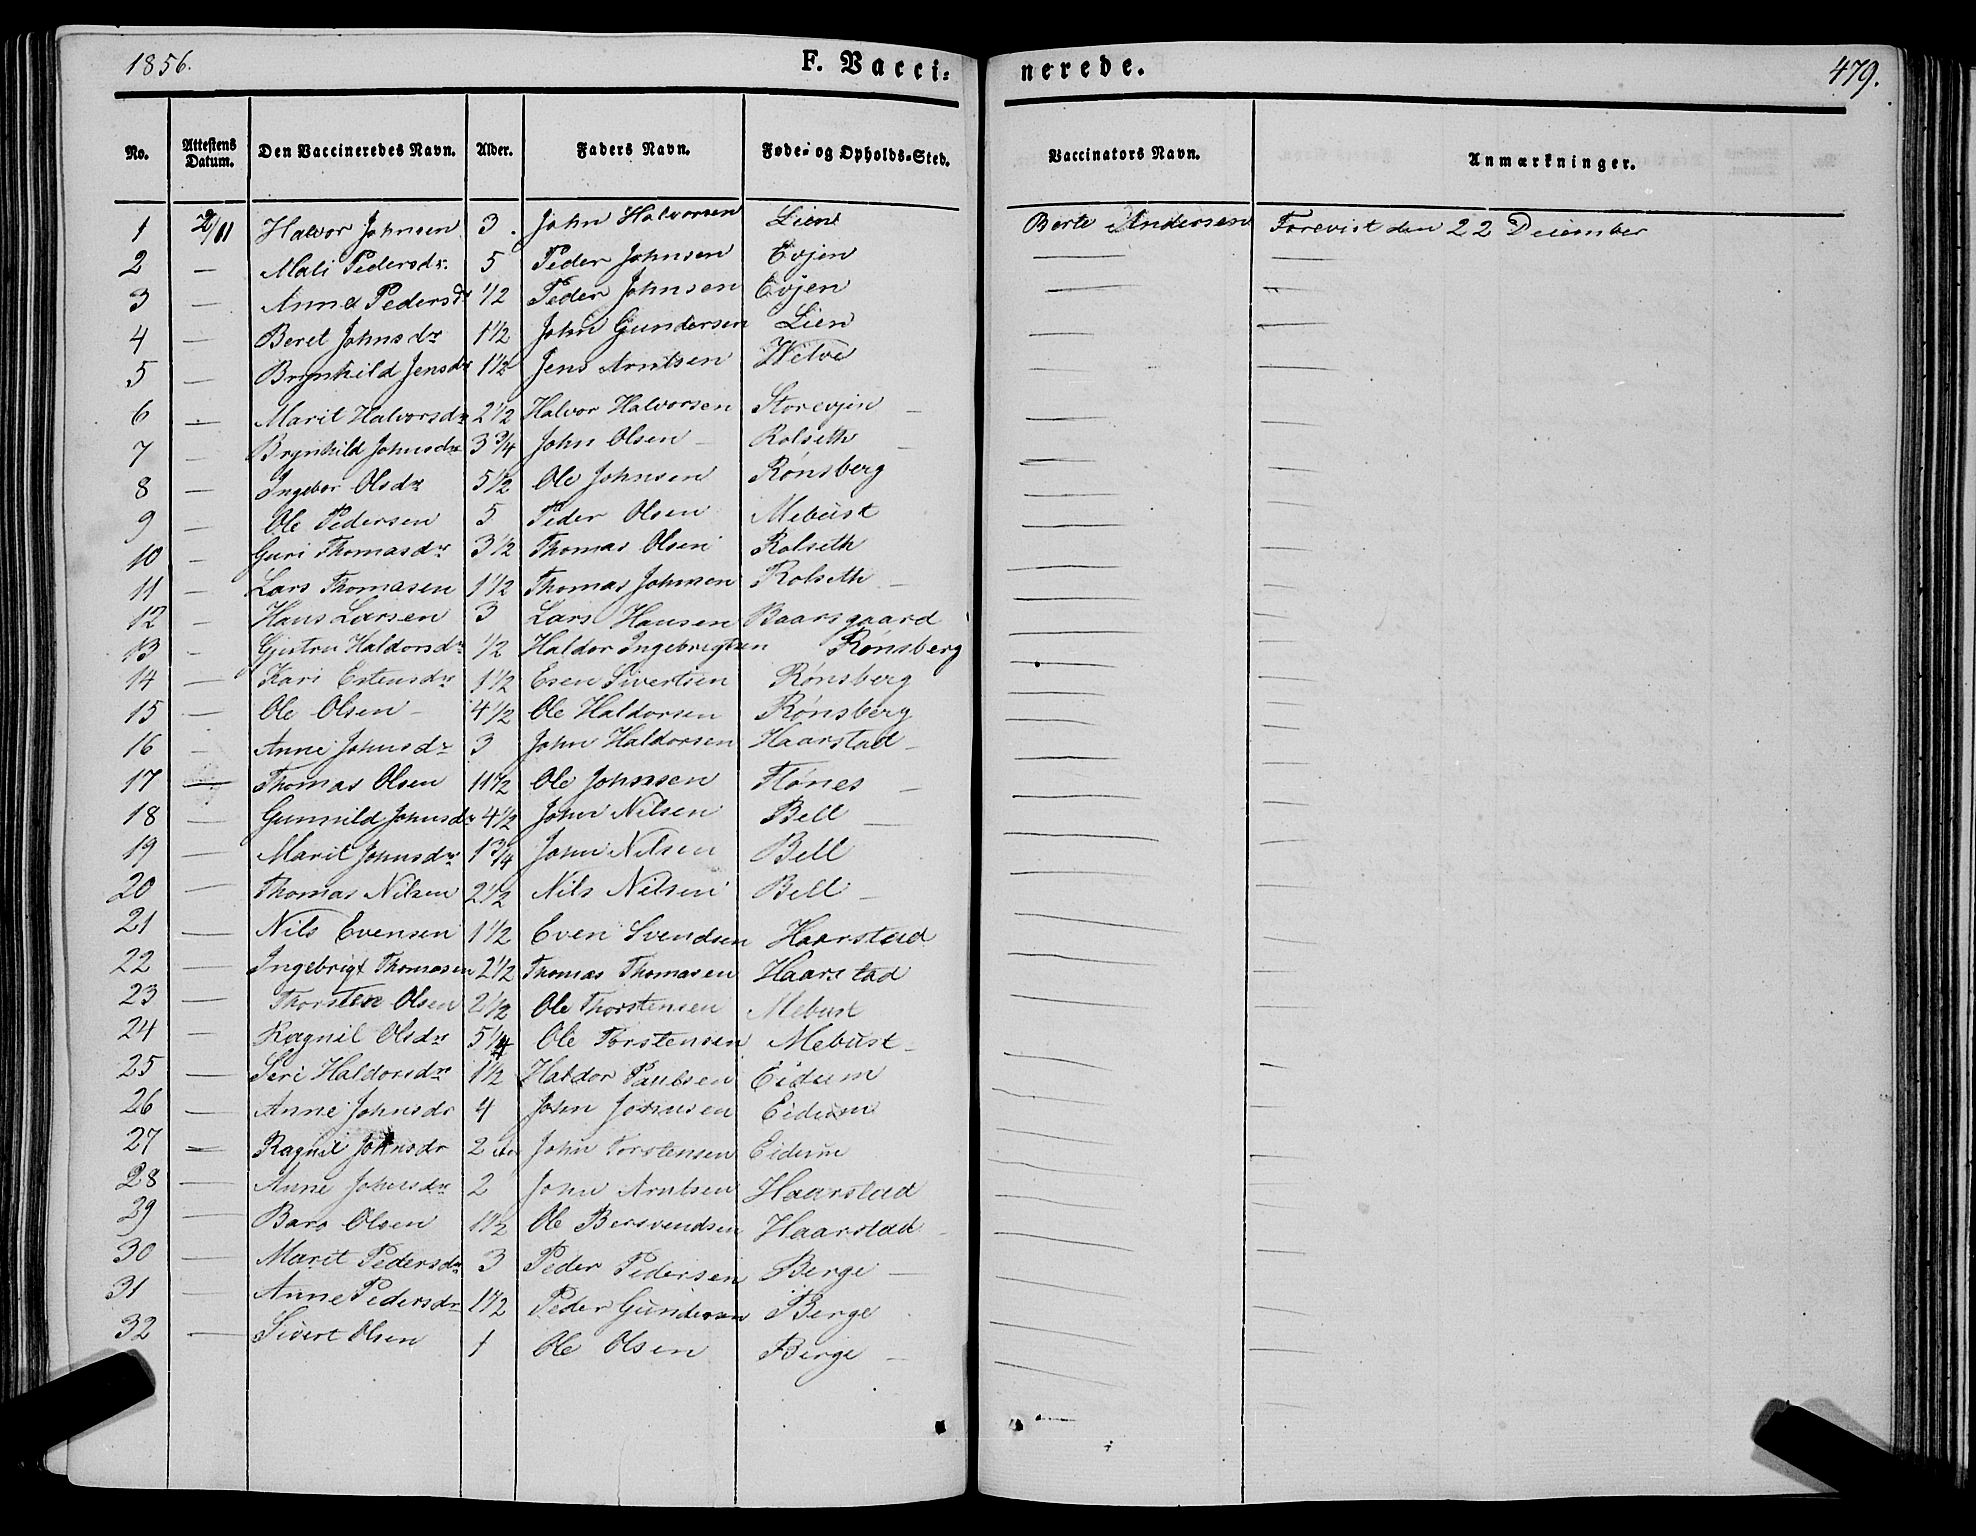 1856.
F. Vacci- nerede.
479.
No. Attestens Datum. Den Vaccineredes Navn. Alder. Faders Navn. Føde- og Opholds-Sted. Vaccinators Navn. Anmærkninger.
1 2/11 Halvor Johnsen 3. John Halvorsen Lien Berte Andersen Forevist den 22 December
2 — Mali Pedersdr. 5 Peder Johnsen Evjen — —
3 — Anne Pedersdr 1/2 Peder Johnsen Evjen — —
4 — Beret Johnsdr 1 1/2 John Gundersen Lien — —
5 — Brynhild Jensdr 1 1/2 Jens Arntsen — —
6 — Marit Halvorsdr 2 1/2 Halvor Halvorsen Storevjen — — —
7 — Brynhild Johnsdr 3 3/4 John Olsen — Rolseth — — —
8 — Ingebor Olsdr 5 1/2 Ole Johnsen Rønsberg — —
9 — Ole Pedersen 5 Peder Olsen Mebust — —
10 — Guri Thomasdr 3 1/2 Thomas Olsen Rolseth — —
11 — Lars Thomasen 1 1/2 Thomas Johnsen Rolseth — — —
12 — Hans Larsen 3 Lars Hansen Baarsgaard — —
13 — Gjertru Haldorsdr 1/2 Haldor Ingebrigtsen Rønsberg — —
14 — Kari Estensdr 1 1/2 Esen Sivertsen Rønsberg — —
15 — Ole Olsen — 4 1/2 Ole Haldorsen Rønsberg — —
16 — Anne Johnsdr 3 John Haldorsen Haarstad — — —
17 — Thomas Olsen 11 1/2 Ole Johnsen Flønes — — —
18 — Gunnild Johnsdr 4 1/2 John Nilsen Bell — — —
19 — Marit Johnsdr 1 3/4 John Nilsen Bell — —
20 — Thomas Nilsen 2 1/2 Nils Nilsen Bell — — —
21 — Nils Evensen 1 1/2 Even Svendsen Haarstad — —
22 — Ingebrigt Thomasen 2 1/2 Thomas Thomasen Haarstad — —
23 — Thorsten Olsen 2 1/2 Ole Thorstensen Mebust — —
24 — Ragnil Olsdr 5 1/4 Ole Torstensen Mebust — — —
25 — Seri Haldorsdr 1 1/2 Haldor Paulsen Eidum — —
26 — Anne Johnsdr 4 John Johnsen Eidum — —
27 — Ragnil Johnsdr 2 John Torstensen Eidum — —
28 — Anne Johnsdr 2 John Arntsen Haarstad — —
29 — Baro Olsen 1 1/2 Ole Bersvendsen Haarstad — — —
30 — Marit Pedersdr 3 Peder Pedersen Berge — — —
31 — Anne Pedersdr 1 1/2 Peder Gundersen Berge — —
32 — Sivert Olsen 1 Ole Olsen Berge — — —